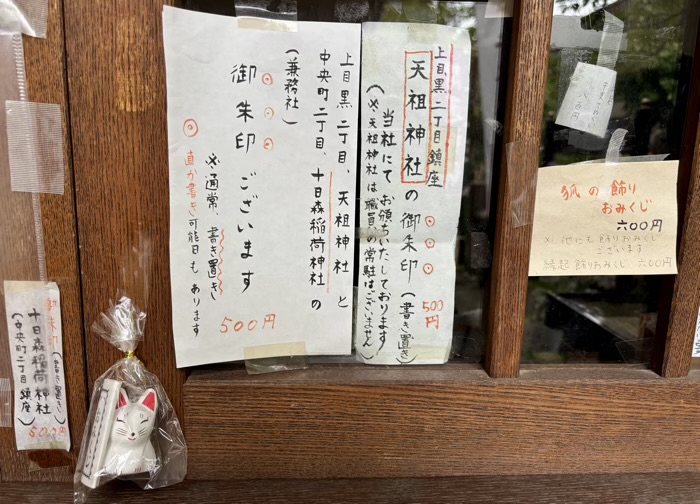 上目黒二丁目鎮座
天祖神社の御朱印(書き置き)
500円
当社にてお頒ちいたしております
(※天祖神社は職員の常駐はございません)
上目黒二丁目、天祖神社と
中央町二丁目、十日森稲荷神社の
(兼務社)
御朱印ございます
500円
※通常、書き置き
直か書き可能日もあります
狐の飾り
おみくじ
六〇〇円
※他にも飾りおみくじ
ございます
縁起飾りおみくじ六〇〇円
御朱印(書き置き)
十日森稲荷神社
(中央町二丁目鎮座)
500円